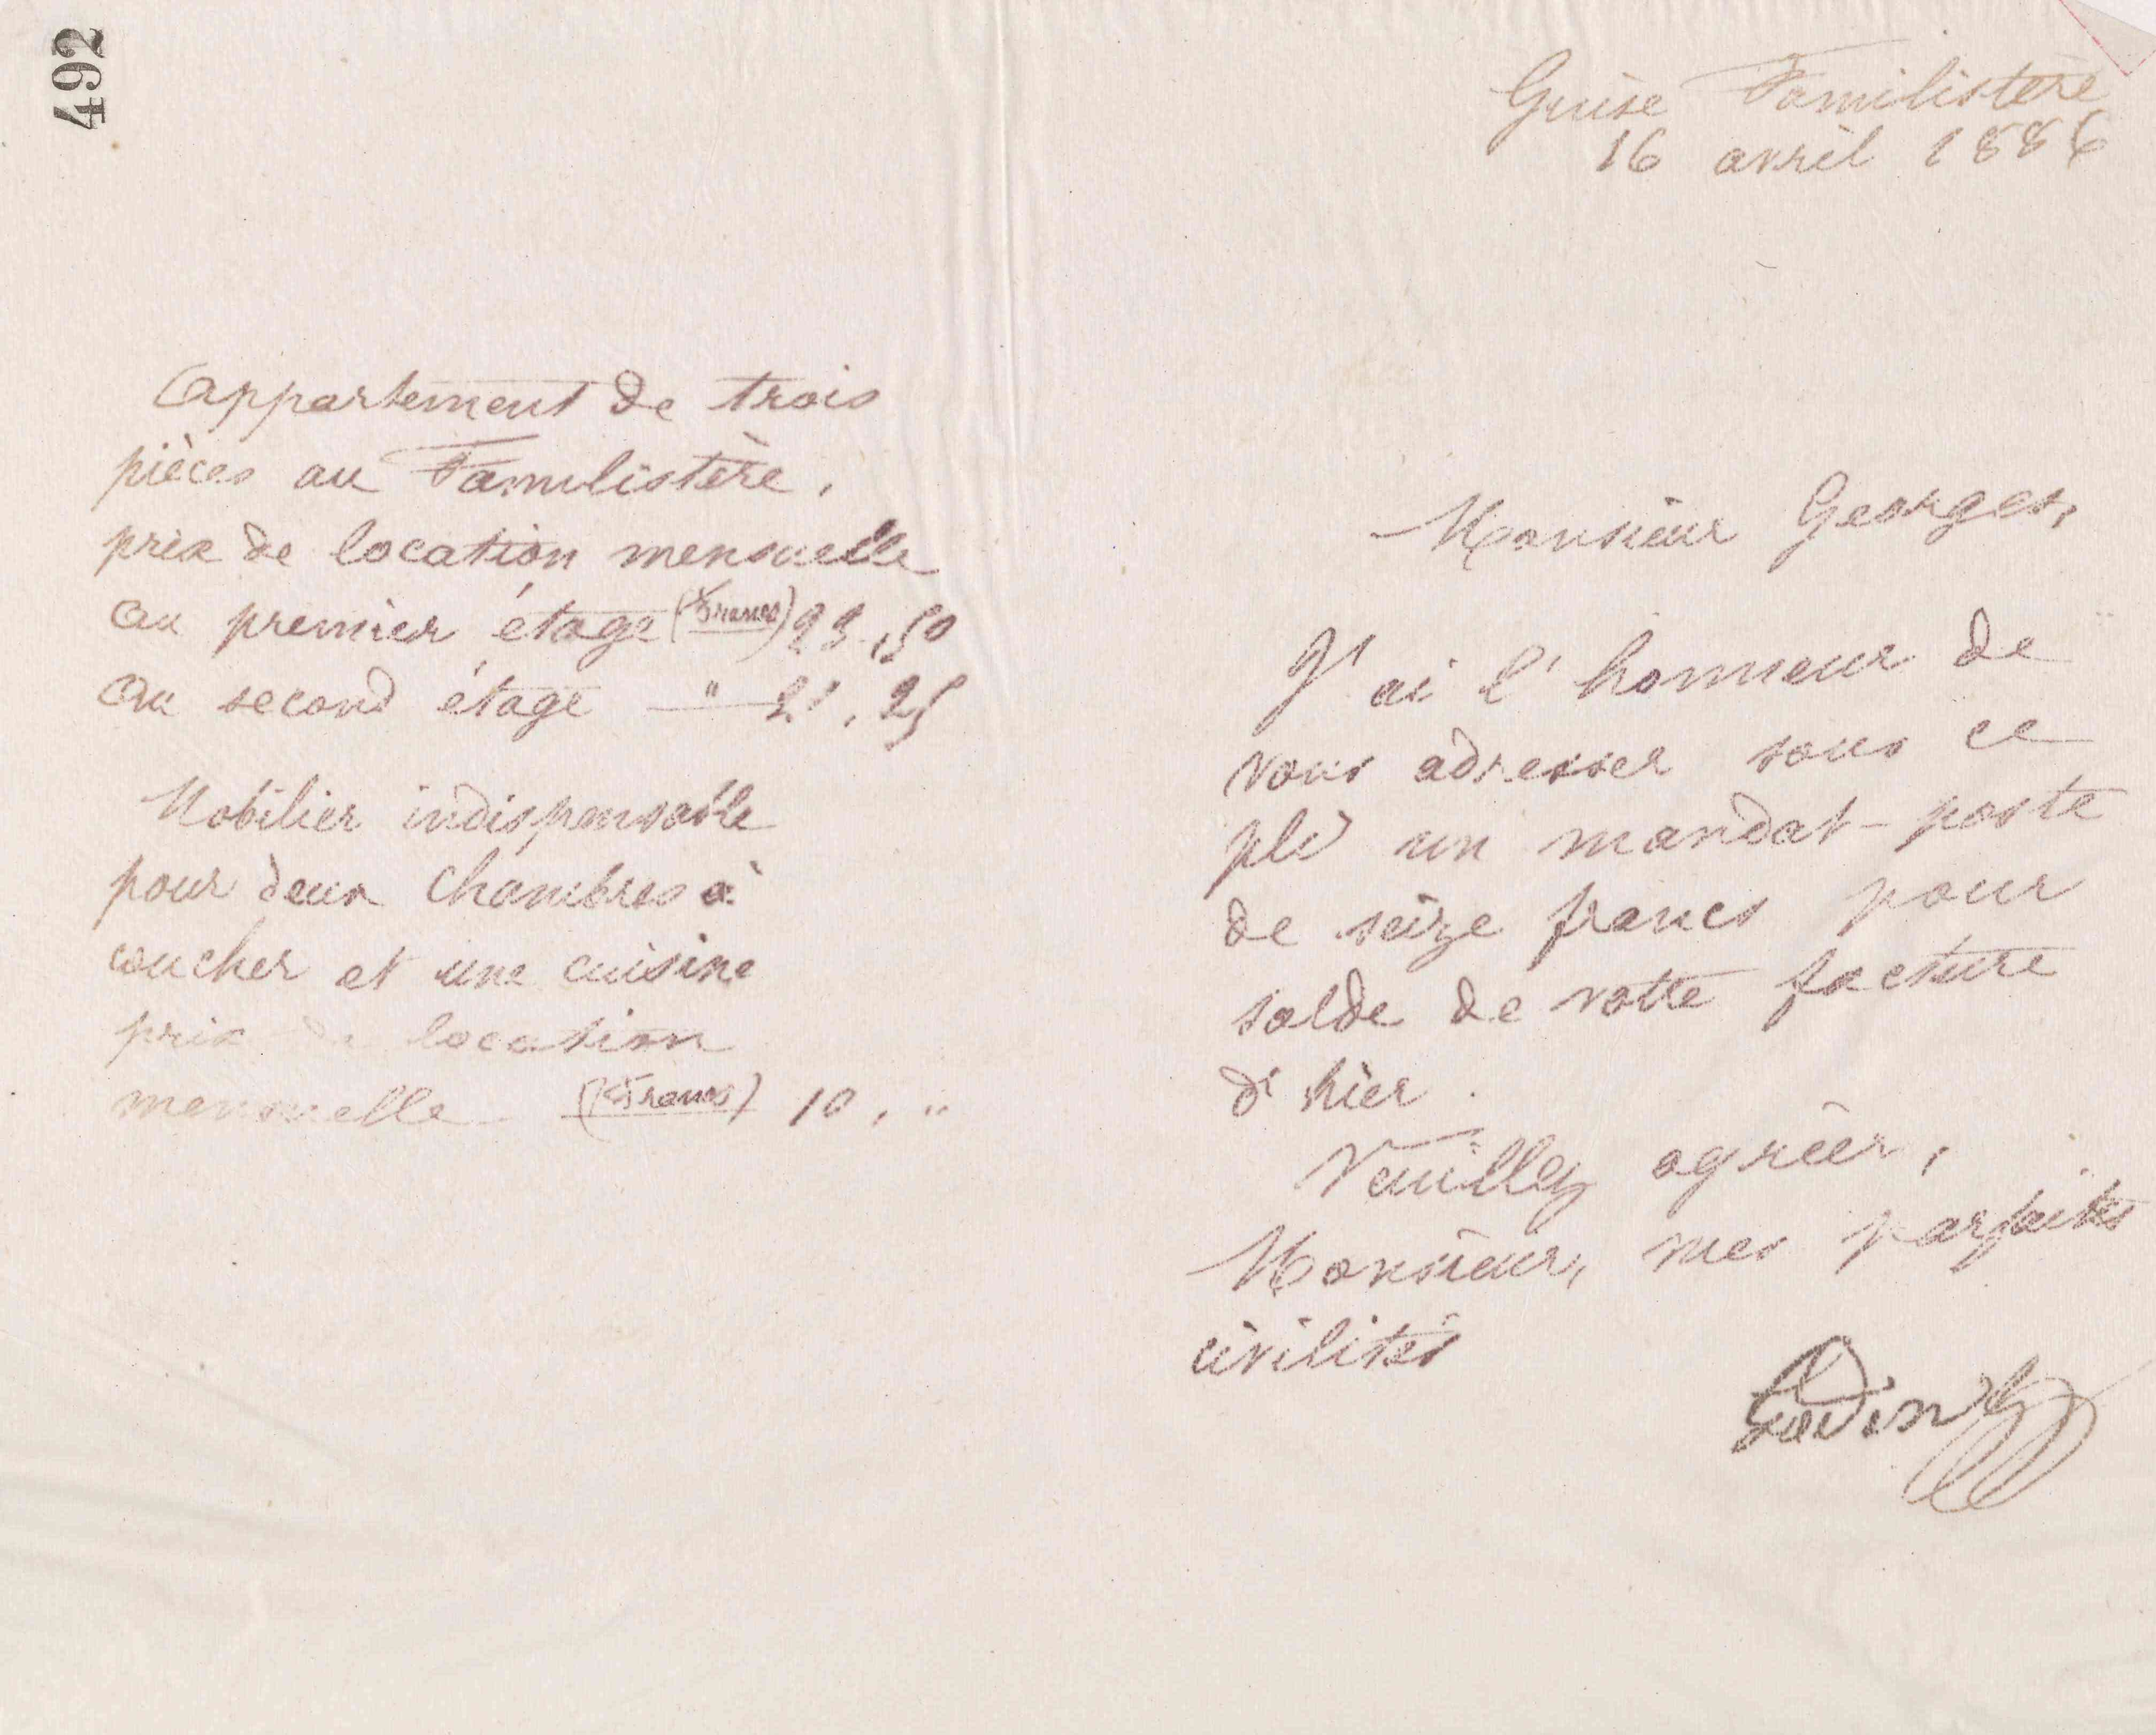 492
Appartement de trois
pièces au Familistère,
prix de location mensuelle
au premier étage (francs) 23,50
au second étage — " — 21,25
Mobilier indispensable
pour deux chambres à
coucher et une cuisine
prix de location
mensuelle (francs) 10, "
Guise Familistère
16 avril 1886
Monsieur Georges,
J'ai l'honneur de
vous adresser sous ce
pli un mandat-poste
de seize francs pour
solde de votre facture
d'hier.
Veuillez agréer,
Monsieur, mes parfaites
civilités
Godin